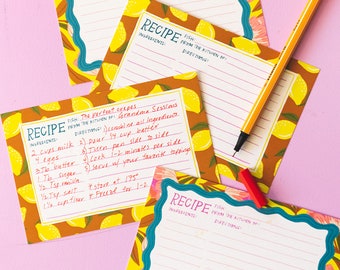 RECIPE
RECIPE FOR:
FROM THE KITCHEN OF:
INGREDIENTS: DIRECTIONS:
RECIPE FOR: The perfect crepes
FROM THE KITCHEN OF: Grandma Sessions
INGREDIENTS: DIRECTIONS:
2 cups milk
4 eggs
3 Tb butter
1 Tb sugar
1 Tsp vanilla
½ Tsp salt
1½ cup flour
1) Combine all ingredients
2) Pour ¼ cup batter
3) Turn pan side to side
4) Cook 1-2 minutes per side
5) Serve w/ your favorite toppings
* store at 195°
* Freeze for 1-2
RECIPE FOR:
FROM THE KITCHEN OF:
INGREDIENTS: DIRECTIONS: